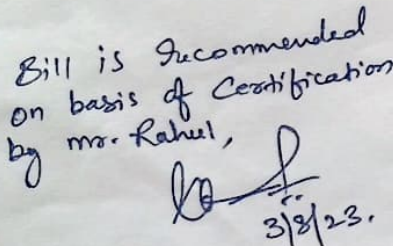 Bill is recommended
on basis of Certification
by mr. Rahul,
3/8/23.